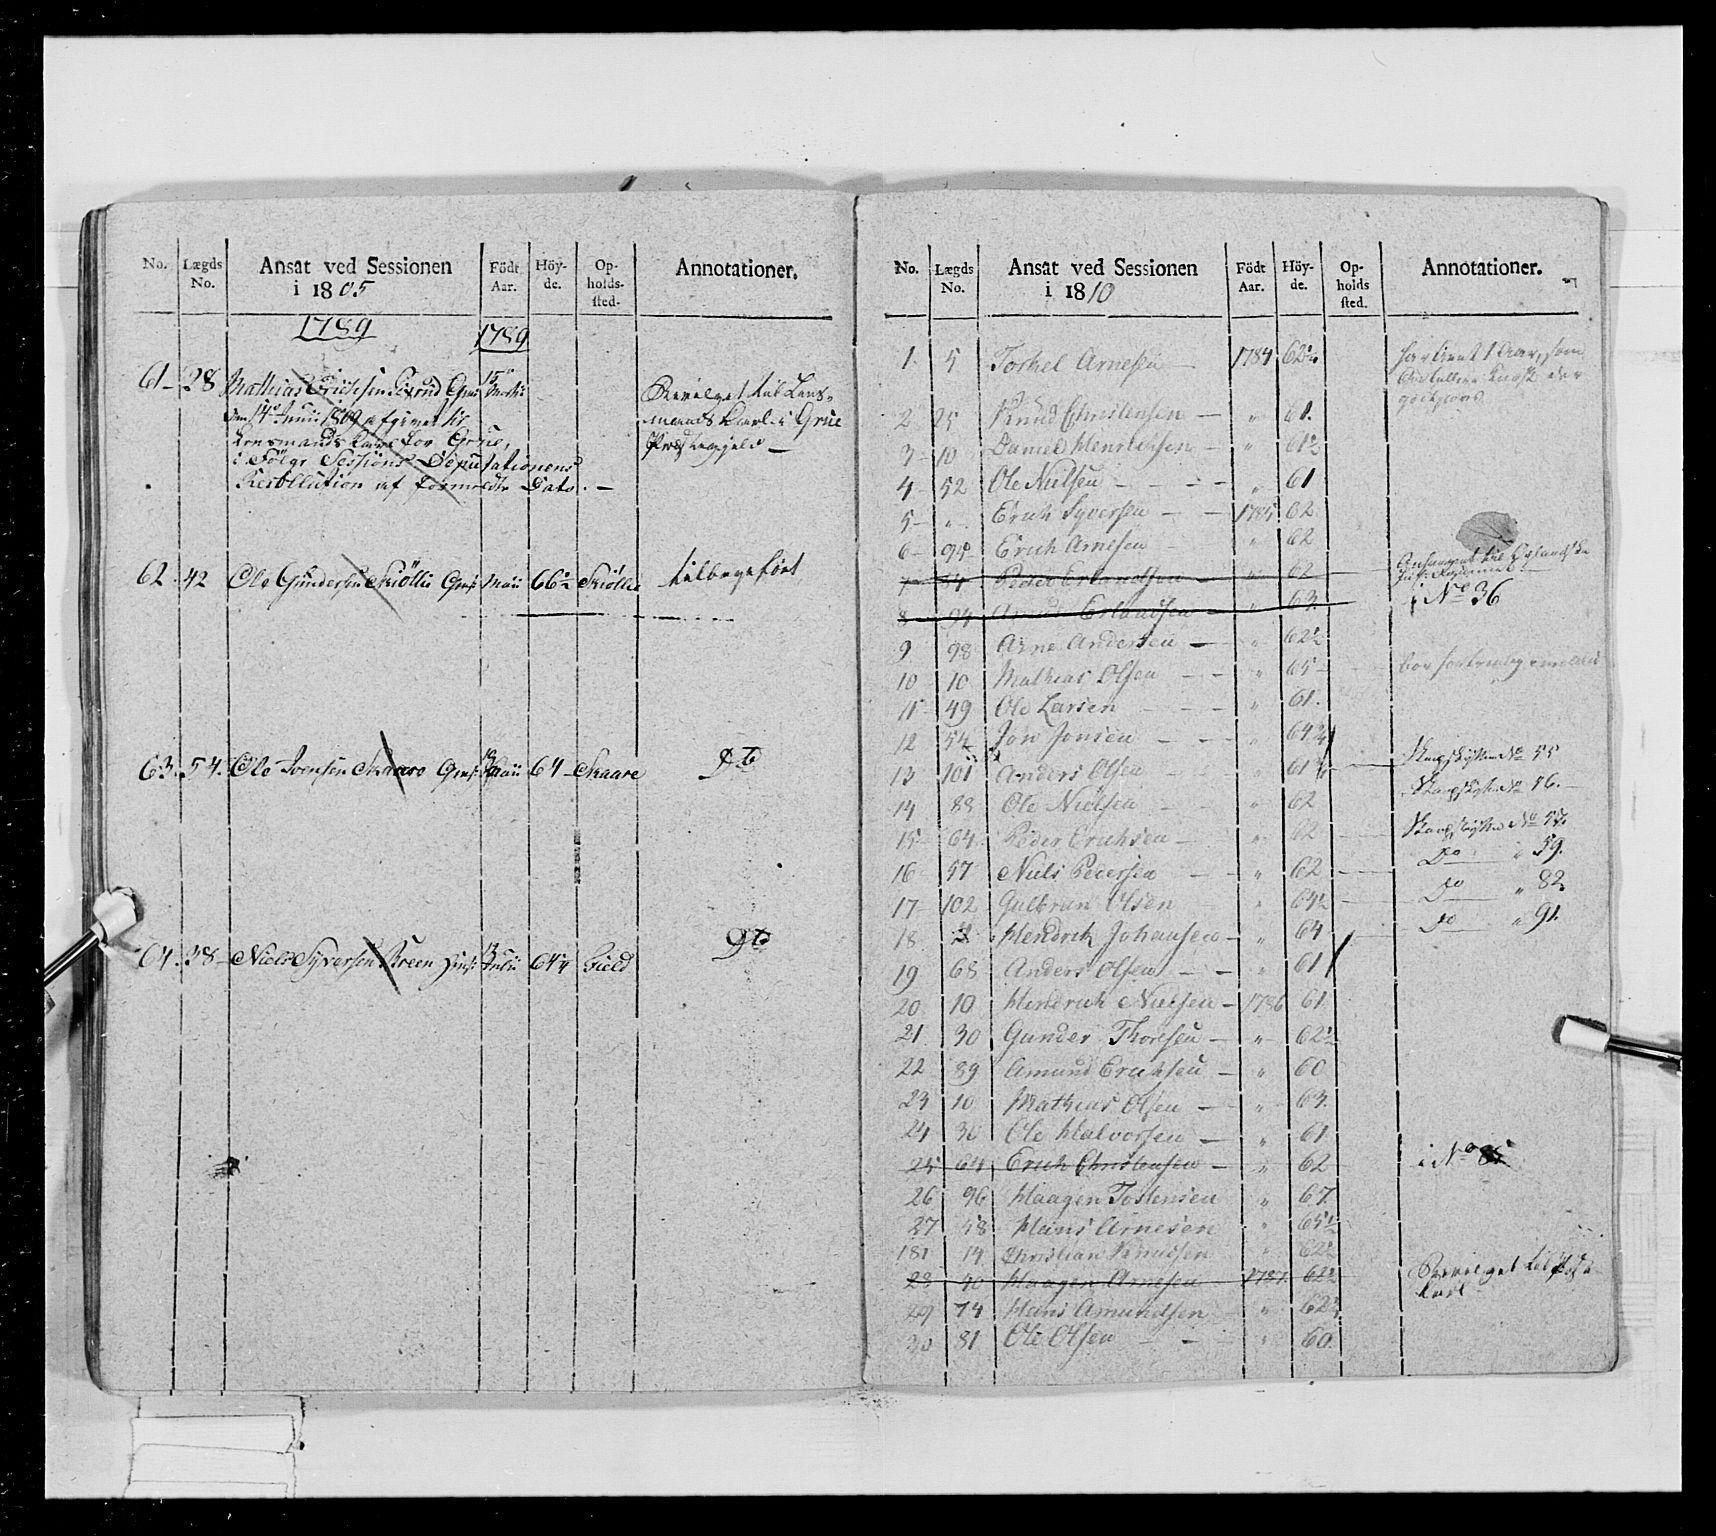 No. Lægds No. Ansat ved Sessionen i 1805 Födt Aar. Höyde. Opholdssted. Annotationer.
1789 1789
61 28 Mathias Erichsen Grue
den 14de Junii 1809 afgivet til
Lensmands Karl for Grue,
i Fölge Sessions Deputationens
Resollution af formeldte Dato. —
Bevilget til Lens-
mands Karl i Grue
Præstegjeld —
62 42 Ole Gundersen Skiöllie Maii 66½ Skiöllie tilbageført
63. 54. Ole Ivensen Skaare Maii 64 Skaare Do
64. 38 Niels Syversen Breen Julii 64¼ Gield Do
No. Lægds No. Ansat ved Sessionen i 1810 Födt Aar. Höyde. Opholds sted. Annotationer.
1. 5 Torkel Arnesen 1784 62¾ har tient 1 Aar, som
2 25 Knud Christensen „ 61.
3 10 Daniel Henrichsen „ 61½
4 52 Ole Nielsen „ 61
5 „ Erich Syversen 1785 62
6 95 Erich Arnesen „ 62
7 94 Peder Erlandsen „ 62
8 94 Erlandsen „ 63. i No 36
9 98 Arne Andersen „ 62½
10 10 Mathias Olsen „ 65
11 49 Ole Larsen „ 61.
12 54 Jon Jonsen „ 64¾
13 101 Anders Olsen „ 61¾ Skarpskytter No 55
14 88 Ole Nielsen „ 62 Skarpskytter No 56.
15 64 Peder Erichsen „ 62 Skarpskytter No 57.
16 57 Niels Pedersen „ 62 Do „ 59.
17 102 Gulbran Olsen „ 64½ Do „ 82
18 2 Hendrich Johansen „ 64 Do „ 91.
19 68 Anders Olsen „ 61
20 10 Hendrich Nielsen 1786 61
21 30 Gunder Thoresen „ 62½
22 89 Amund Erichsen „ 60
23 10 Mathias Olsen „ 63.
24 30 Ole Halvorsen „ 61
25 64 Erich Christensen „ 62 i No 85
26 96 Haagen Tostensen „ 67.
27 58 Hans Arnesen „ 65½
181 14 Christian Knudsen „ 62½
28 90 Haagen Arnesen 1787. 62½ Bevilget til
Karl
29 74 Hans Amundsen „ 62½
30 81 Ole Olsen „ 60.